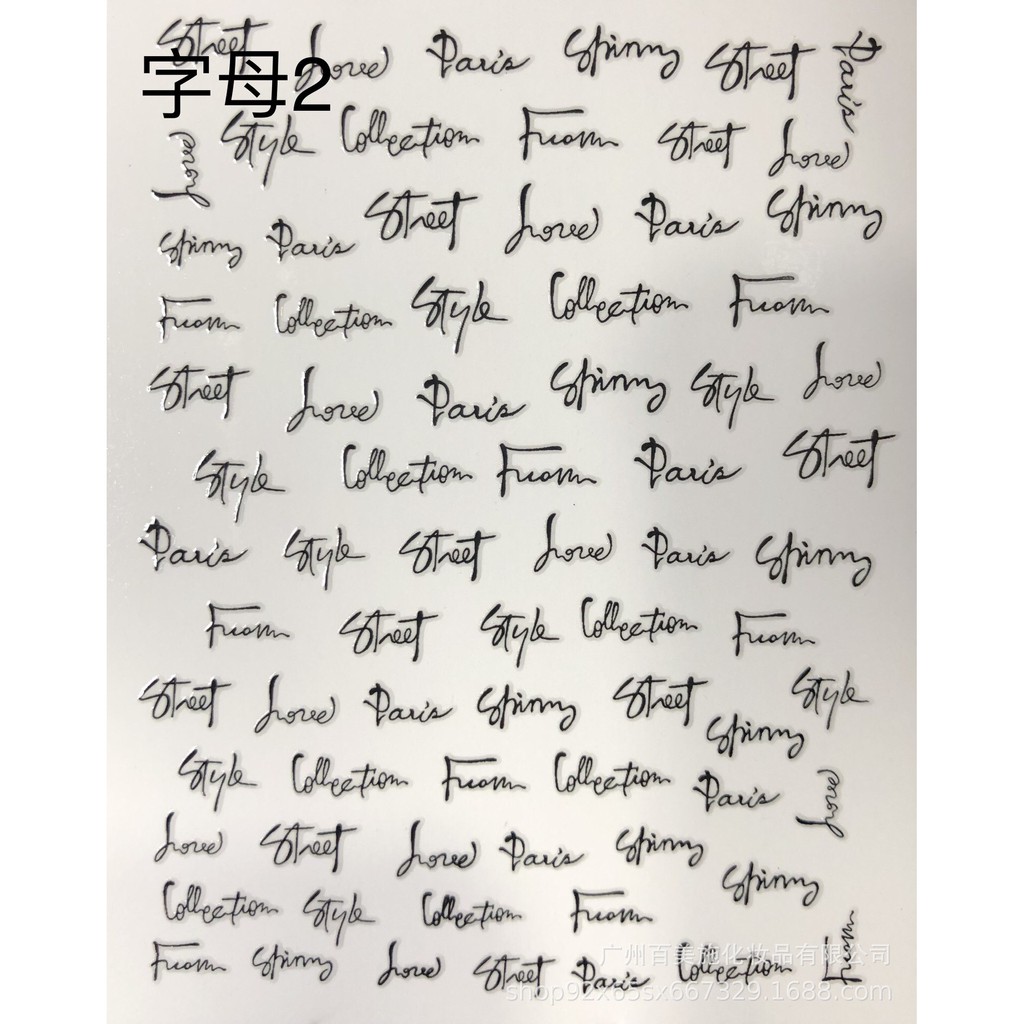 Street Love Paris Spinny Street Paris
字母2
Love Style Collection Fuomn Street Love
Street Love Paris Spinny
Spinny Paris
Fuomn Collection Style Collection Fuomn
Street Love Paris Spinny Style Love
Style Collection Fuomn Paris Street
Paris Style Street Love Paris Spinny
Fuomn Street Style Collection Fuomn
Street Love Paris Spinny Street Style
Spinny
Style Collection Fuomn Collection Paris Love
Love Street Love Paris Spinny
Spinny
Collection Style Collection Fuomn
Fuomn Spinny Love Street Paris Collection Fuomn
广州百美施化妆品有限公司
shop92x65sx667329.1688.com